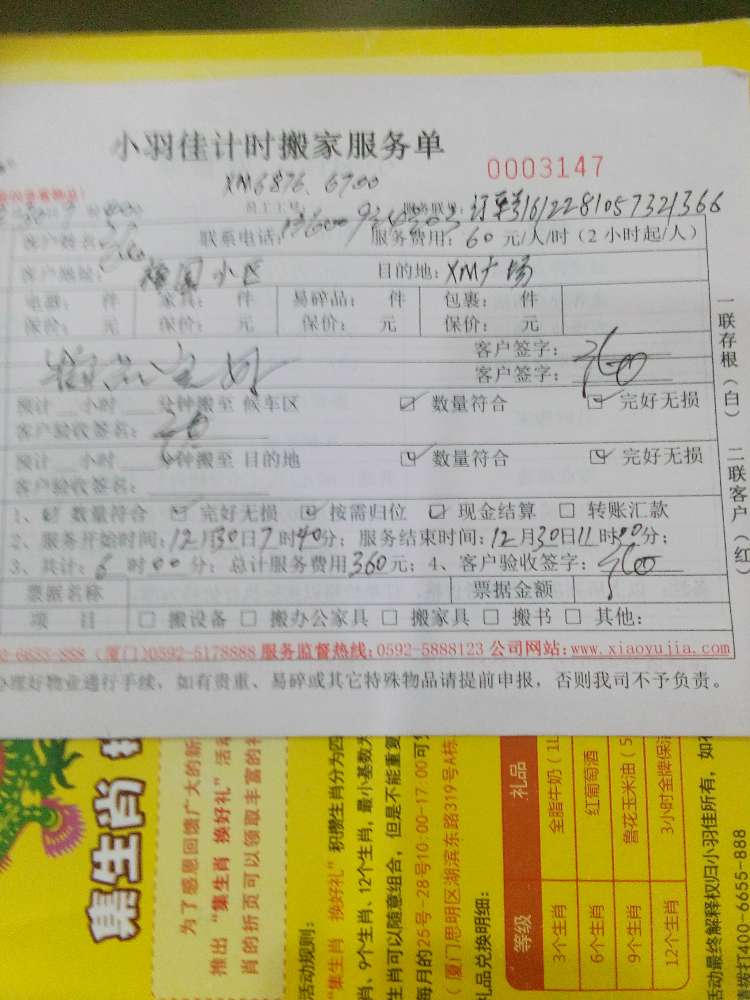 小羽佳计时搬家服务单
0003147
XM6876、6700
订单号1612281057321366
客户姓名: 联系电话: 服务费用:60元/人/时(2小时起/人)
客户地址: 小区 目的地:XM广场
电器: 件 家具: 件 易碎品: 件 包裹: 件
保价: 元 保价: 元 保价: 元 保价: 元
客户签字:
物品完好 客户签字:
预计 小时 分钟搬至 候车区 ☑ 数量符合 ☑ 完好无损
客户验收签名:
预计 小时 分钟搬至 目的地 ☑ 数量符合 ☑ 完好无损
客户验收签名:
1、☑ 数量符合 ☑ 完好无损 ☑ 按需归位 ☑ 现金结算 □ 转账汇款
2、服务开始时间:12月30日7时40分;服务结束时间:12月30日11时00分;
3、共计:6时00分;总计服务费用360元;4、客户验收签字:
票据名称 票据金额
项 目 □ 搬设备 □ 搬办公家具 □ 搬家具 □ 搬书 □ 其他:
6655-888(厦门)0592-5178888 服务监督热线:0592-5888123 公司网站:www.xiaoyujia.com
办理好物业通行手续,如有贵重、易碎或其它特殊物品请提前申报,否则我司不予负责。
一联存根(白) 二联客户(红)
集生肖
为了感恩回馈广大的新
推出“集生肖 换好礼”活动
肖的折页可以领取丰富的礼
活动规则:
“集生肖 换好礼”积攒生肖分为四
肖、9个生肖、12个生肖,最小基数为
生肖可以随意组合,但是不能重复
每月的25号-28号10:00-17:00可
(厦门思明区湖滨东路319号A栋
礼品兑换明细:
等级 礼品
3个生肖 全脂牛奶(1L
6个生肖 红葡萄酒
9个生肖 鲁花玉米油(5
12个生肖 3小时金牌保洁
活动最终解释权归小羽佳所有,如有
拨打400-6655-888